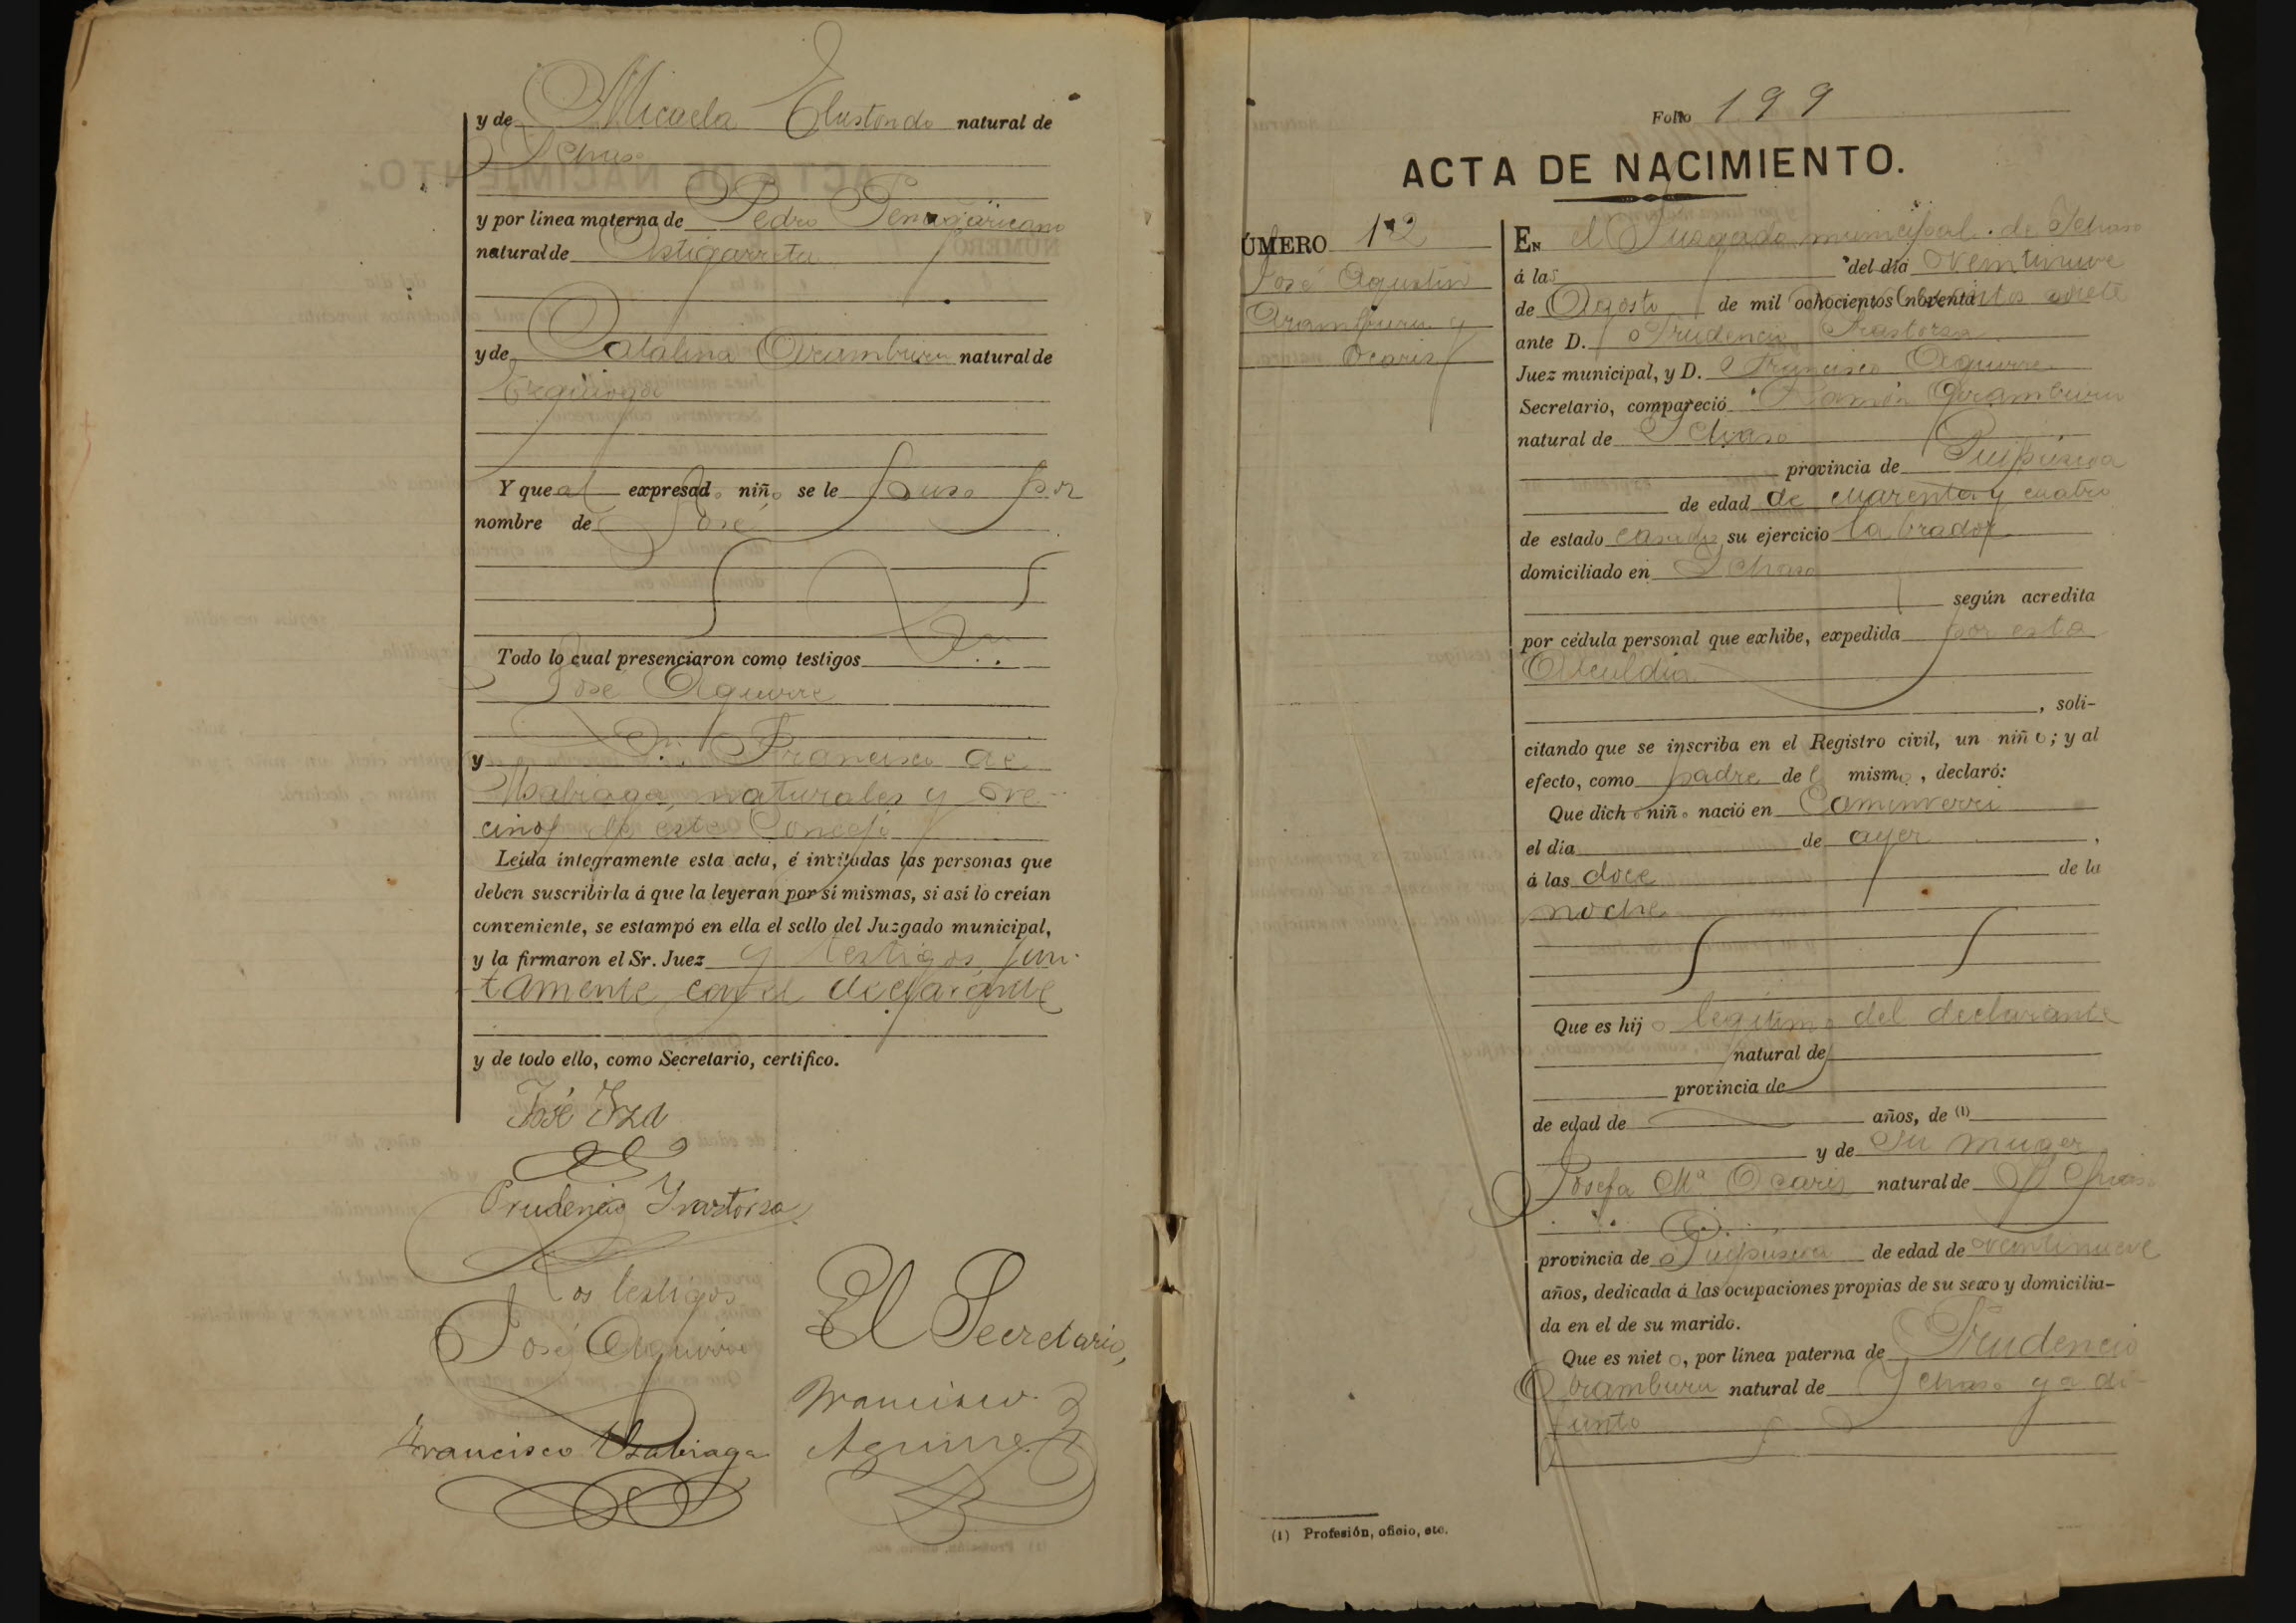 y de Micaela Elustondo natural de
Ichaso
y por linea materna de Pedro
natural de Astigarreta
y de Catalina Aramburu natural de
Ezquioga
Y que al expresado niño se le puso por
nombre de José
Todo lo cual presenciaron como testigos Dn
José Aguirre
y Dn Francisco de
Usabiaga, naturales y ve-
cinos de este Concejo
Leida íntegramente esta acta, é invitadas las personas que
deben suscribirla á que la leyeran por sí mismas, si así lo creían
conveniente, se estampó en ella el sello del Juzgado municipal,
y la firmaron el Sr. Juez y testigos jun-
tamente con el declarante
y de todo ello, como Secretario, certifico.
José Yza
Prudencio
Los testigos
José Aguirre
Francisco Usabiaga
El Secretario,
Francisco
Aguirre
Folio 199
ACTA DE NACIMIENTO.
ÚMERO 12
José Agustin
Aramburu y
Ocariz
En el Juzgado municipal de Ichaso
á las del día veintinueve
de Agosto de mil ochocientos noventa siete
ante D. Prudencio
Juez municipal, y D. Francisco Aguirre
Secretario, compareció Ramón Aramburu
natural de Ichaso
provincia de Guipúzcoa
de edad de cuarenta y cuatro
de estado casado su ejercicio labrador
domiciliado en Ichaso
según acredita
por cédula personal que exhibe, expedida por esta
Alcaldia
, soli-
citando que se inscriba en el Registro civil, un niño; y al
efecto, como padre del mismo, declaró:
Que dicho niño nació en Caminverri
el día de ayer,
á las doce de la
noche
Que es hijo legitimo del declarante
natural de
provincia de
de edad de años, de (1)
y de su muger
Josefa Mª Ocariz natural de Ichaso
provincia de Guipúzcoa de edad de veintinueve
años, dedicada á las ocupaciones propias de su sexo y domicilia-
da en el de su marido.
Que es nieto, por línea paterna de Prudencio
Aramburu natural de Ychaso ya di-
funto
(1) Profesión, oficio, etc.